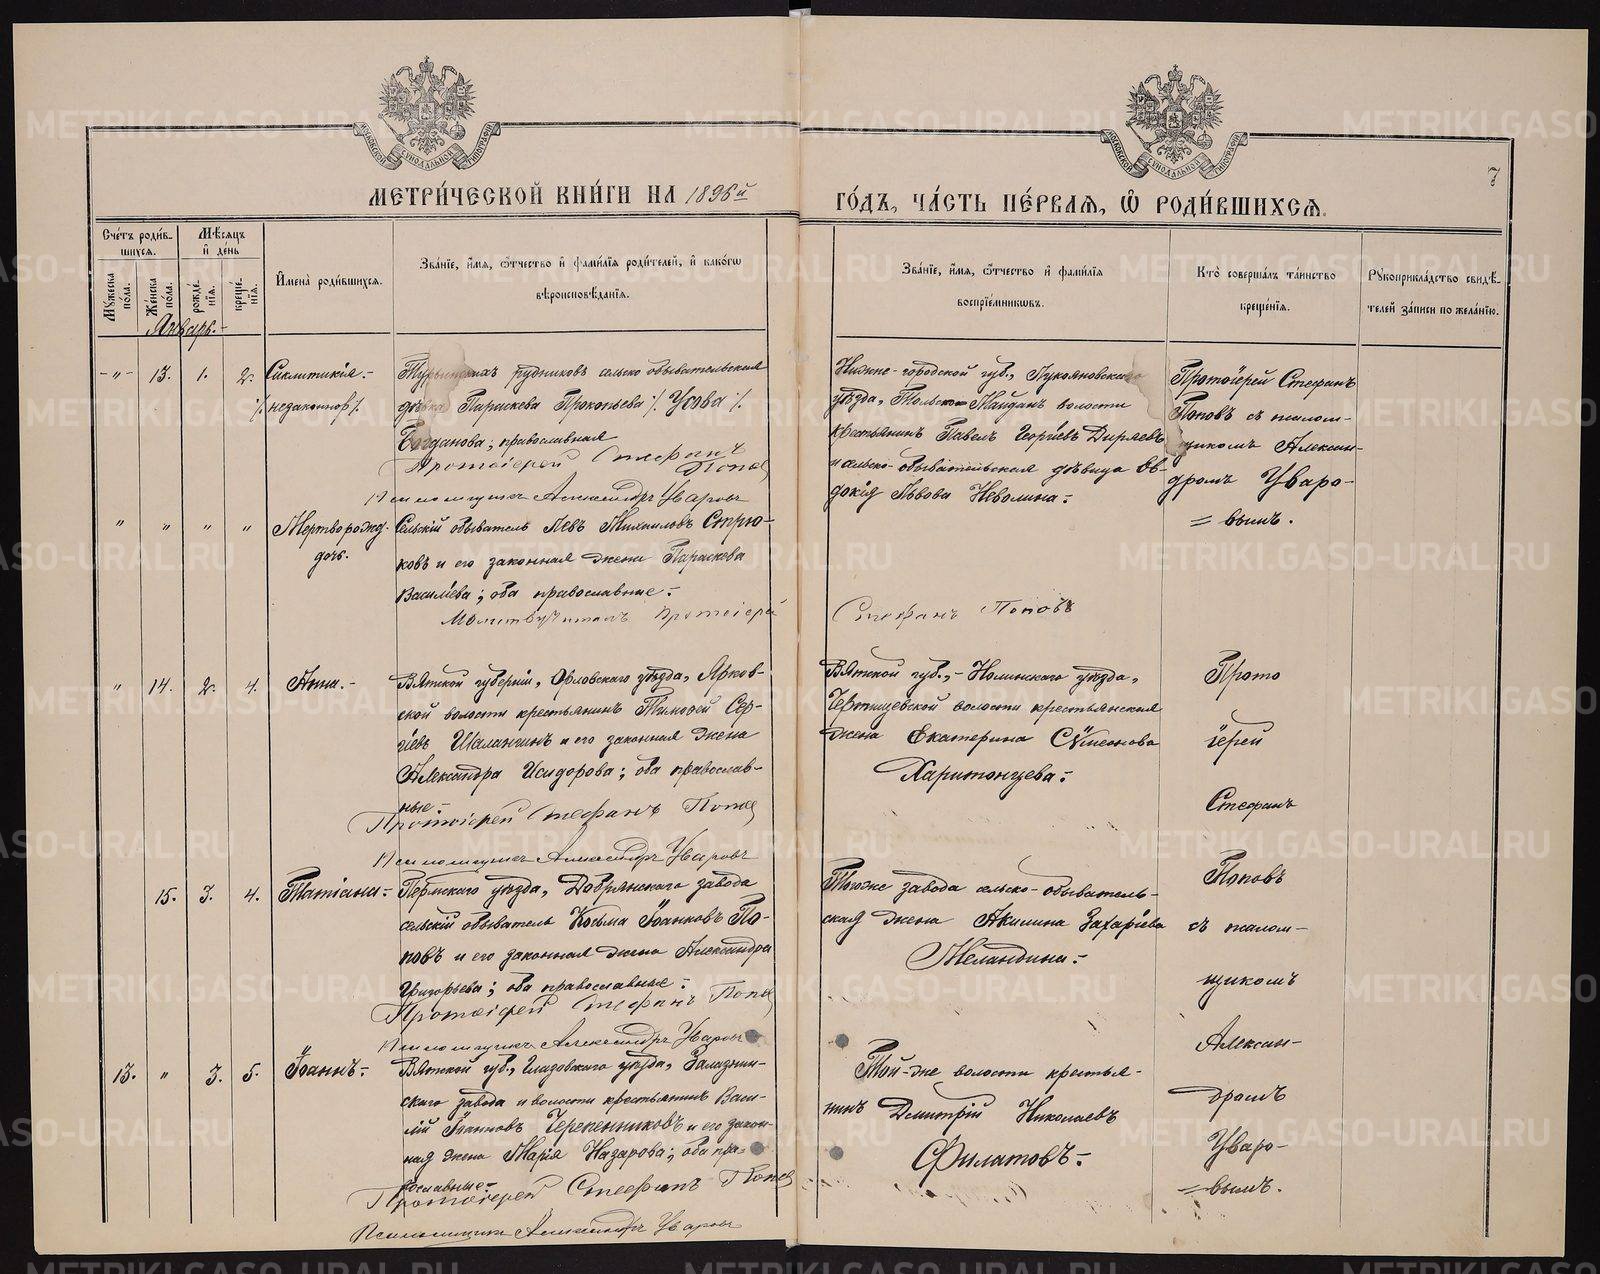 МЕТРИ́ЧЕСКОЙ КНИ́ГИ НА 1896й
ГО́ДЪ, ЧА́СТЬ ПЕ́РВАЯ, Ѡ҆ РОДИ́ВШИХСЯ.
7
Сче́тъ роди́в-
шихся.
Мѣ́сяцъ
и҆ де́нь
Мꙋ́жеска
по́ла.
Же́нска
по́ла.
рожде́-
нїя.
креще́-
нїя.
И҆мена̀ роди́вшихся.
Зва́нїе, и҆́мя, ѻ҆́тчество и҆ фами́лїя роди́телей, и҆ како́гѡ
вѣроисповѣ́данїя.
Зва́нїе, и҆́мя, ѻ҆́тчество и҆ фами́лїя
воспрїе́мникѡвъ.
Кто̀ соверша́лъ та́инство
креще́нїя.
Рꙋкоприкла́дство свидѣ́-
телей за́писи по жела́нїю.
Январь.-
-„- 13. 1. 2. Синклитикія.-
незаконнор.
Турьинскихъ рудниковъ сельско обывательская
дѣвка Параскева Прокопьева ⁒ Усова ⁒
Богданова; православная
Протоіерей Стефанъ
Поповъ
Псаломщикъ Александръ Уваровъ
Ниже-городской губ., Лукояновскаго
уѣзда, Тольско Майдан. волости
крестьянинъ Павелъ Георгіевъ Диряевъ
и сельско-обывательская дѣвица Ев-
докія Львова Неволина.-
Протоіерей Стефанъ
Поповъ съ псалом-
щикомъ Алексан-
дромъ Уваро-
=вымъ.
„ „ „ „ Мертворожд.
дочь.
Сельскій обыватель Левъ Михаиловъ Стрю-
ковъ и его законная жена Параскева
Василіева; оба православные.-
Молитвствовалъ Протоіерей
Стефанъ Поповъ
„ 14. 2. 4. Анна.-
Вятской губерніи, Орловскаго уѣзда, Ярков-
ской волости крестьянинъ Тимофей Сер-
гіевъ Шалангинъ и его законная жена
Александра Исидорова; оба православ-
ные.-
Протоіерей Стефанъ Поповъ
Псаломщикъ Александръ Уваровъ
Вятской губ.,-Нолинскаго уѣзда,
волости крестьянская
жена Екатерина Сѵмеонова
Харитонцева.-
Прото
іерей
Стефанъ
15. 3. 4. Татіана.-
Пермскаго уѣзда, Добрянскаго завода
сельскій обыватель Косьма Іоанновъ По-
повъ и его законная жена Александра
Григорьева; оба православные.-
Протоіерей Стефанъ Поповъ
Псаломщикъ Александръ Уваровъ
Тогоже завода сельско-обыватель-
ская жена Акилина Захаріева
Меландина.-
Поповъ
съ псалом-
щикомъ
Алексан-
13. „ 3. 5. Іоаннъ.-
Вятской губ., Глазовскаго уѣзда, Залазнин-
скаго завода и волости крестьянинъ Васи-
лій Іоанновъ Черепенниковъ и его закон-
ная жена Марія Назарова; оба пра-
вославные.-
Протоіерей Стефанъ Поповъ
Псаломщикъ Александръ Уваровъ
Той-же волости крестья-
нинъ Дмитрій Николаевъ
Филатовъ.-
дромъ
Уваро-
=вымъ.
METRIKI.GASO-URAL.RU